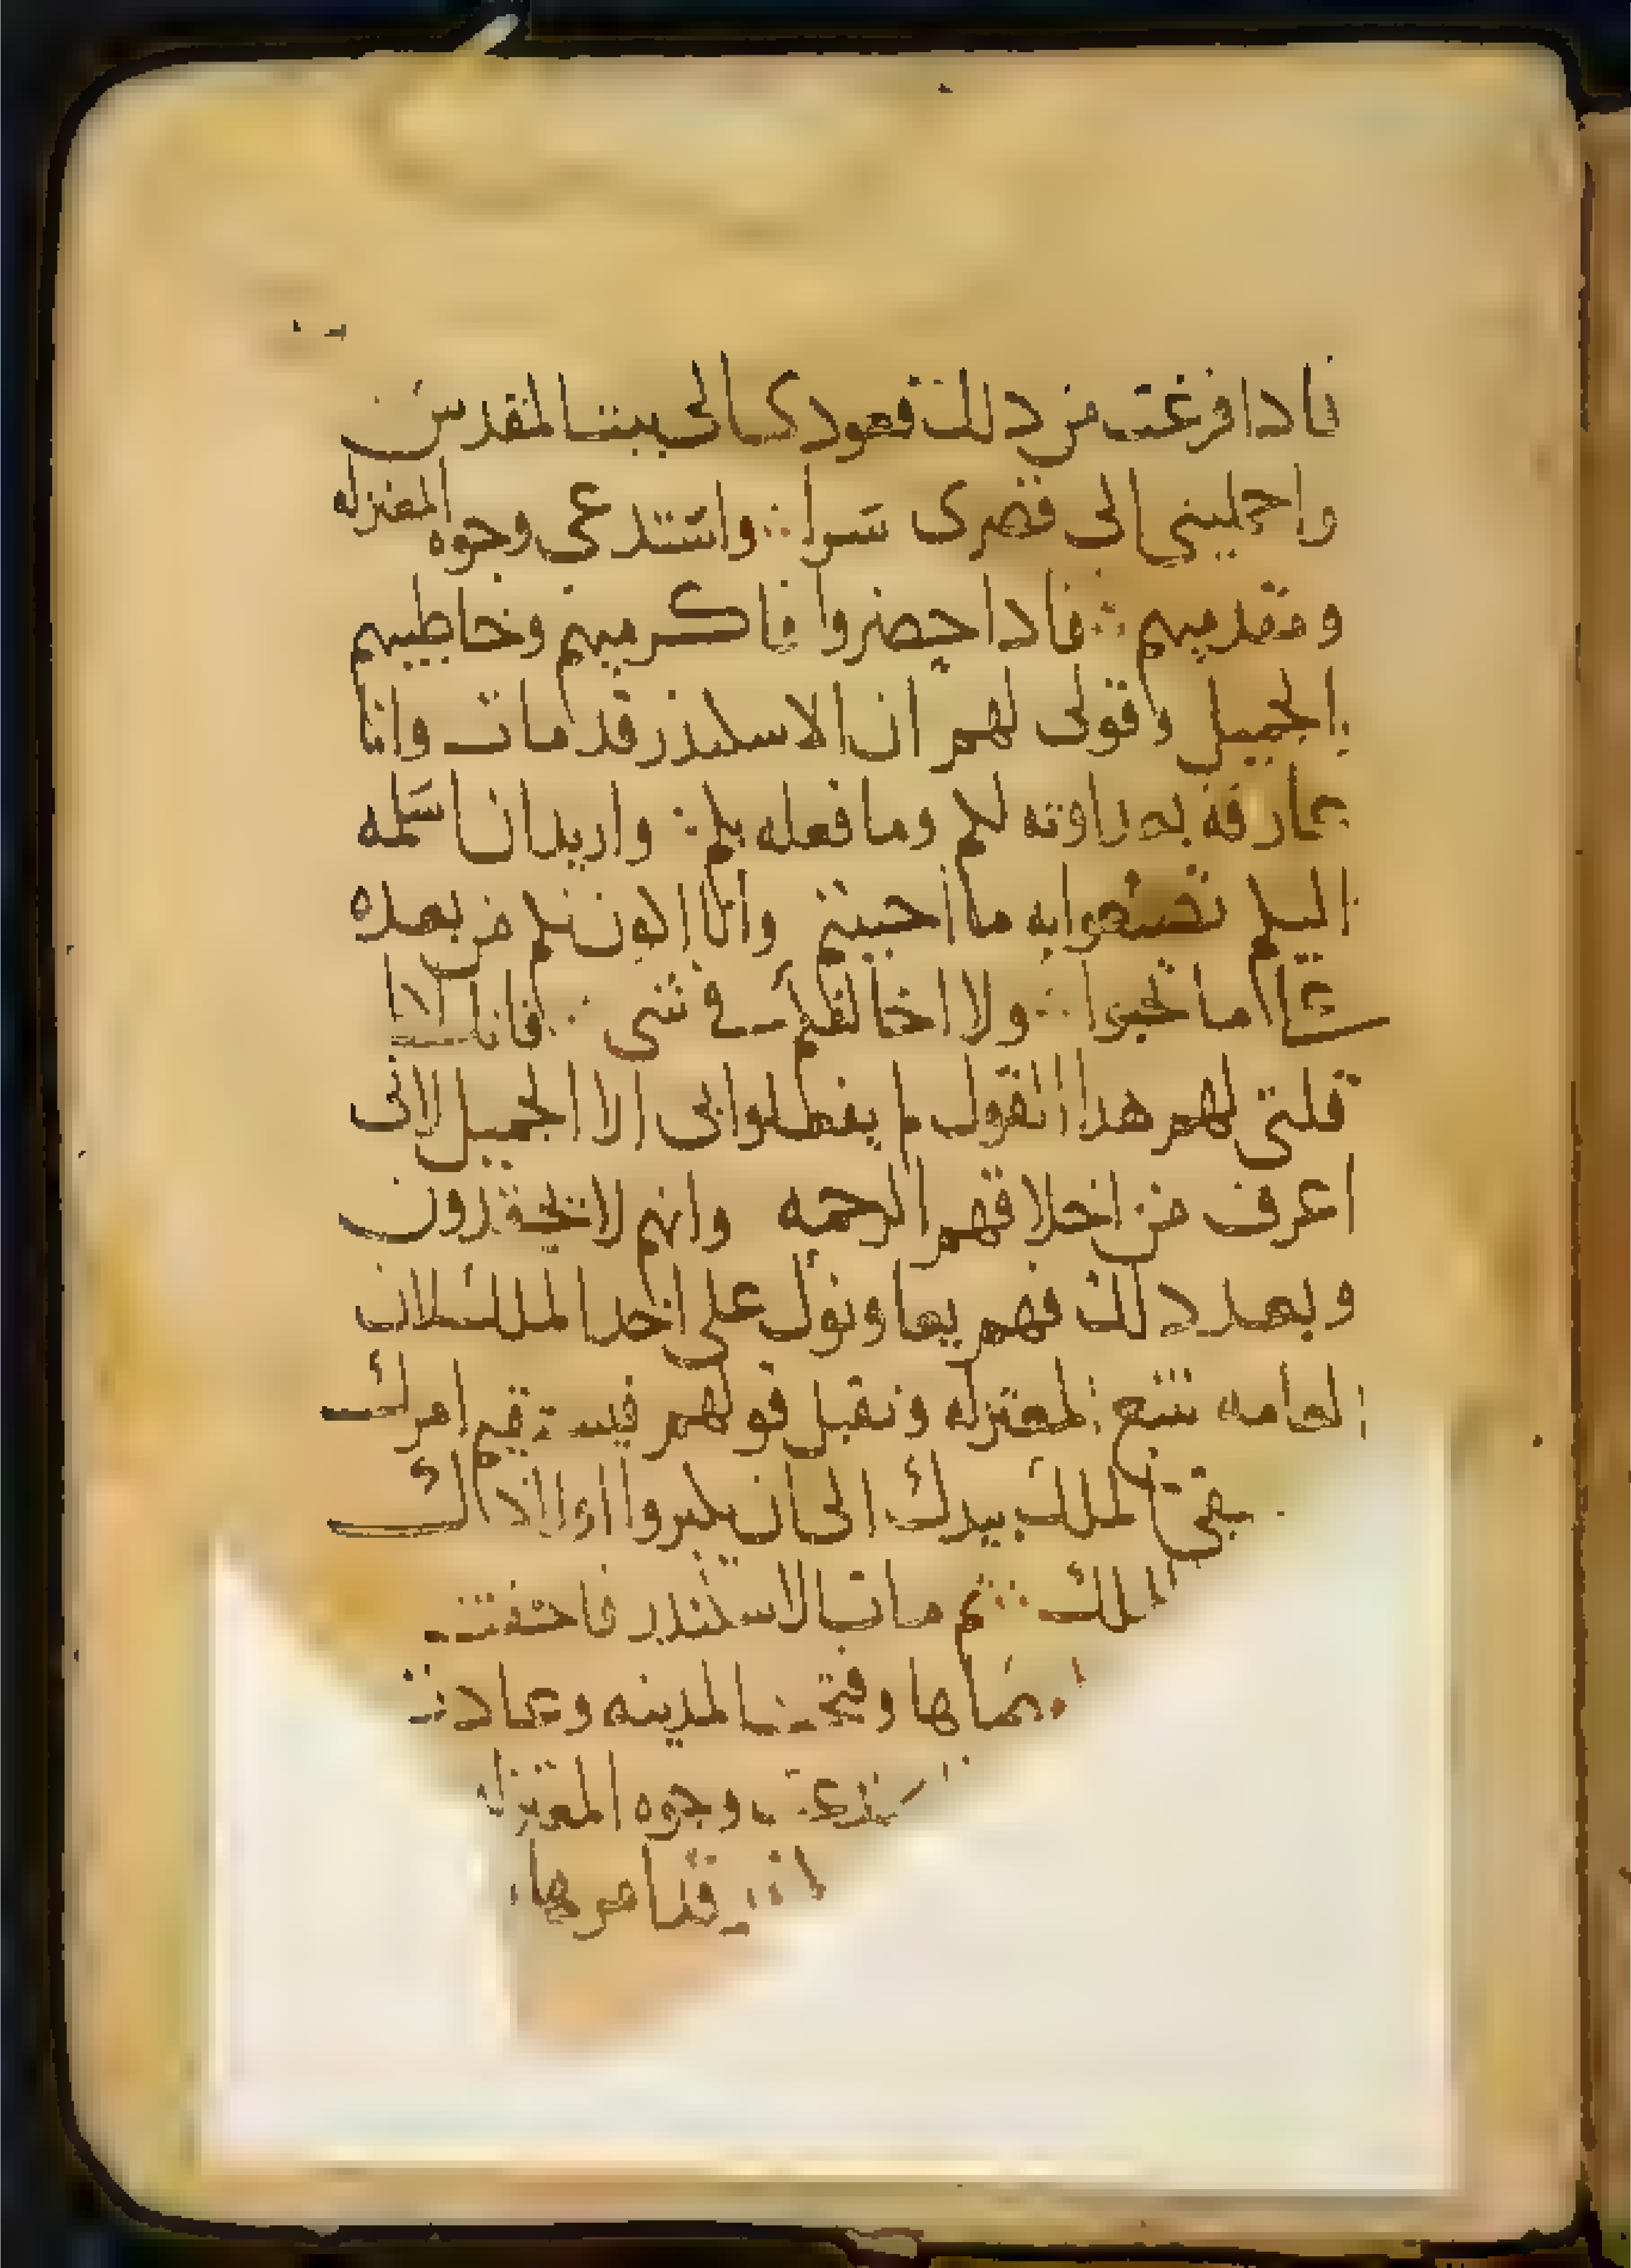 فادا فرغت من دلك فعودي الى بيت المقدس
واحمليني الى قصري سرا واستدعي وجوه المعتزله
ومقدميهم فادا حضروا فاكرميهم وخاطبيهم
بالجميل وقولى لهم ان الاسكندر قد مات وانا
عارفة بعداوته لكم وما فعله بكم واريد ان اسلمه
اليكم تصنعوا به ما احببتم وانا اكون لكم من بعده
كما تحبوا ولا اخالفكم في شي فانك ادا
قلتي لهم هدا القول لم يفعلوا بي الا الجميل لاني
اعرف من اخلاقهم الرحمه وانهم لا يحقدون
وبعد دلك فهم يعاونوك على اخد الملك لان
العامه تتبع المعتزله وتقبل قولهم فيستقيم امرك
يبقى الملك بيدك الى ان يكبروا اولادك
الملك ثم مات الاسكندر فاخفت
وفتحت المدينه وعادت
وجوه المعتزله